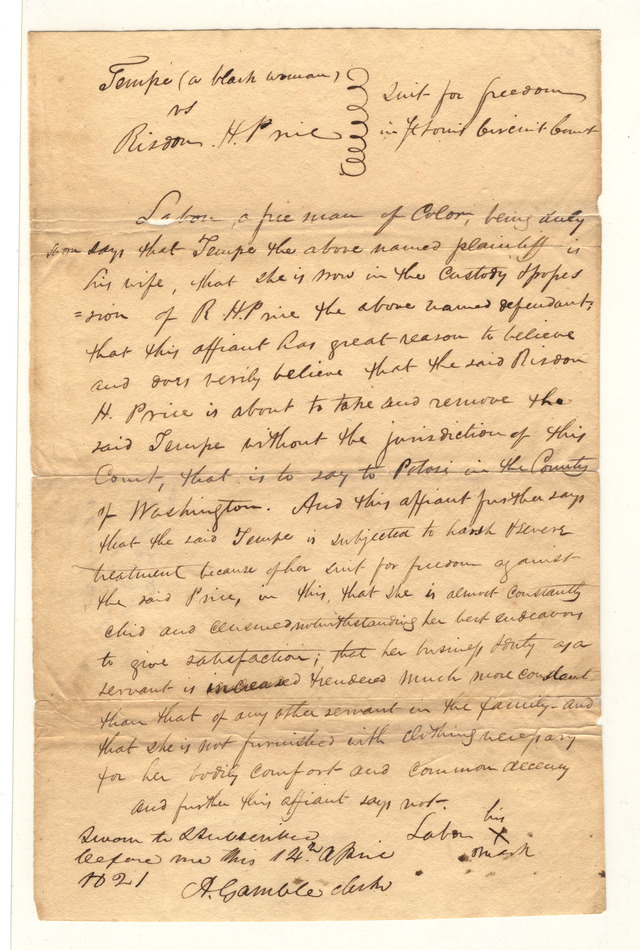 Tempe (a black woman)
vs
Risdon H. Price
Suit for freedom
in St Louis Circuit Court
Labon, a free man of Color, being duly
sworn says that Tempe the above named plaintiff is
his wife, that she is now in the custody & posses
=sion of R. H. Price the above named defendant;
that this affiant has great reason to believe
and does verily believe that the said Risdon
H. Price is about to take and remove the
said Tempe without the jurisdiction of this
Court, that is to say to Potosi in the County
of Washington. And this affiant further says
that the said Tempe is subjected to harsh & severe
treatment because of her suit for freedom against
the said Price, in this, that she is almost constantly
chid and censured notwithstanding her best endeavors
to give satisfaction; that her business & duty as a
servant is increased & rendered much more constant
than that of any other servant in the family - and
that she is not furnished with clothing necessary
for her bodily comfort and common decency
and further this affiant says not.
Sworn to & subscribed
before me this 14th April
1821
Labon his
X
mark
A. Gamble clerk